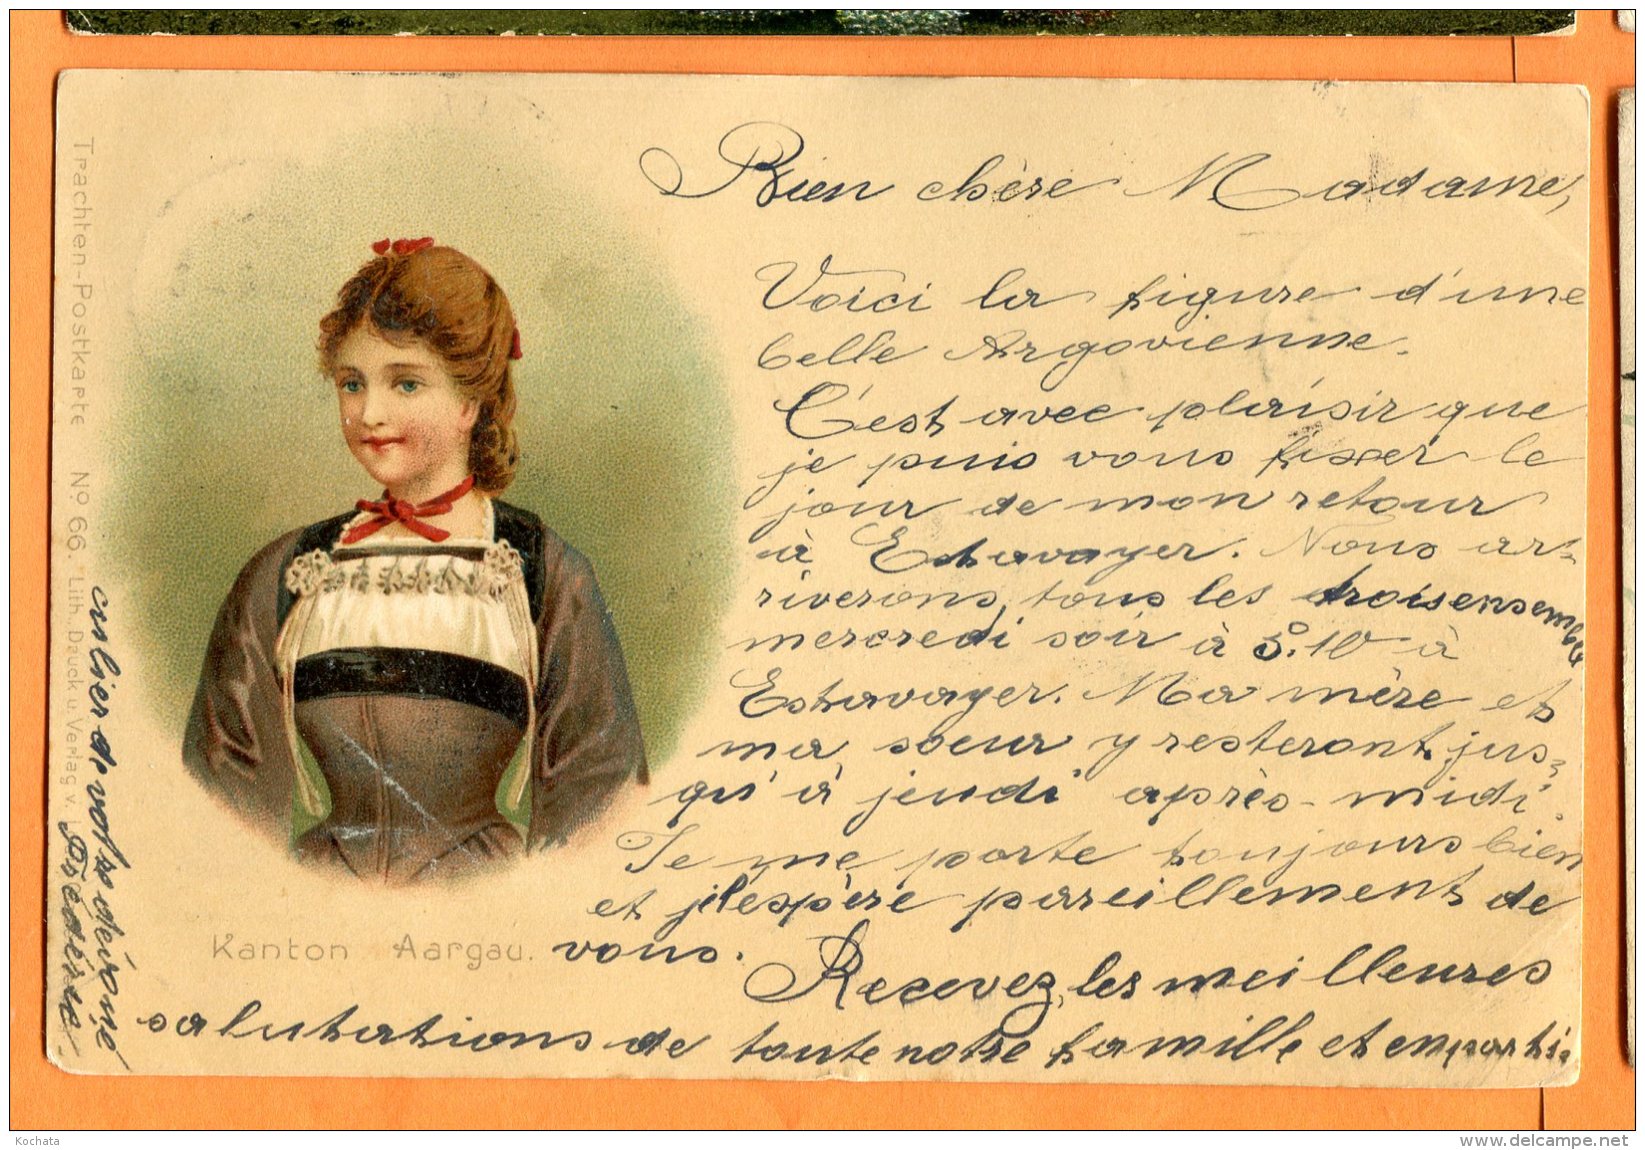 Bien chère Madame,
Voici la figure d'une
belle Argovienne.
C'est avec plaisir que
je puis vous fixer le
jour de mon retour
à Estavayer. Nous ar-
riverons, tous les trois ensemble
mercredi soir à 5.10 à
Estavayer. Ma mère et
ma soeur y resteront jus-
qu'à jeudi après-midi.
Je me porte toujours bien
et j'espère pareillement de
vous.
Recevez, les meilleures
salutations de toute notre famille et en parti-
culier de votre dévouée
Trachten-Postkarte No 66. Lith. Dauck u. Verlag v.
Kanton Aargau.
Kochata
www.delcampe.net